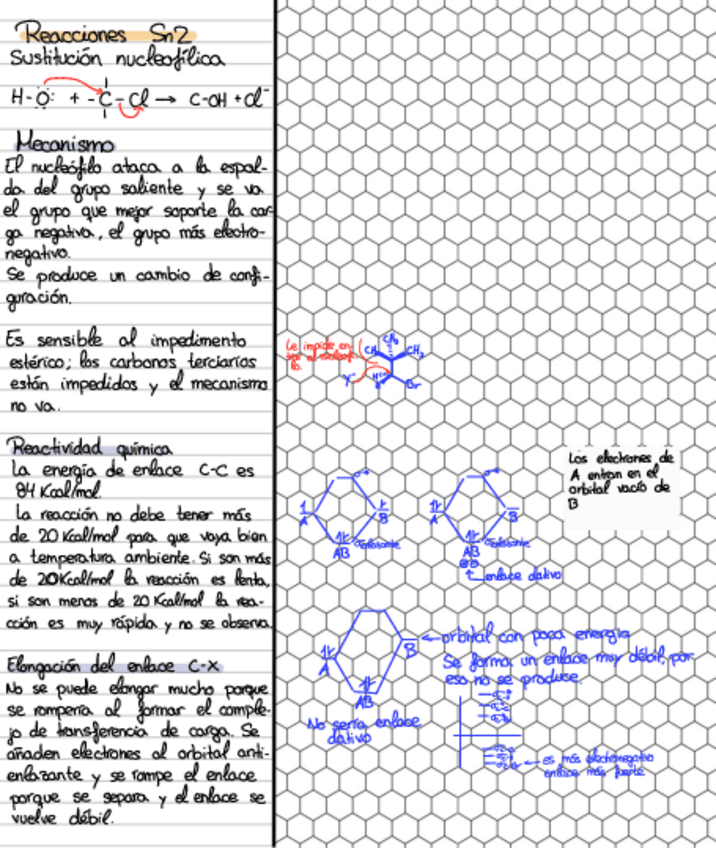 Reacciones Sn2
Sustitución nucleofílica
H-O: + -C-Cl → C-OH + Cl⁻
Mecanismo
El nucleófilo ataca a la espal-
da del grupo saliente y se va
el grupo que mejor soporte la car-
ga negativa, el grupo más electro-
negativo.
Se produce un cambio de confi-
guración.
Es sensible al impedimento
estérico; los carbonos terciarios
están impedidos y el mecanismo
no va.
Le impide en-
CH₃
CH₃
CH₃
Y⁻
H
Br
Reactividad química
La energía de enlace C-C es
84 Kcal/mol.
La reacción no debe tener más
de 20 Kcal/mol para que vaya bien
a temperatura ambiente. Si son más
de 20Kcal/mol la reacción es lenta,
si son menos de 20 Kcal/mol la rea-
cción es muy rápida y no se observa.
Los electrones de
A entran en el
orbital vacío de
B
A
B
AB enlazante
A
B
AB enlazante
enlace dativo
Elongación del enlace C-X
No se puede elongar mucho porque
se rompería al formar el comple-
jo de transferencia de carga. Se
añaden electrones al orbital anti-
enlazante y se rompe el enlace
porque se separa y el enlace se
vuelve débil.
A
B
AB
orbital con poca energía
Se forma un enlace muy débil, por
eso no se produce.
No sería enlace
dativo
es más electronegativo
enlace más fuerte